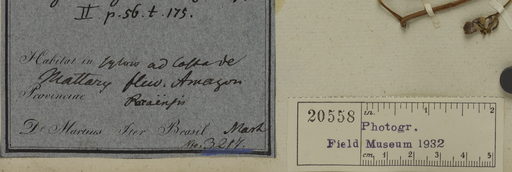 II p. 56. t. 175.
Habitat in Sylvis ad Costa de
Mattary fluv. Amazon
Provinciae Paraënsis
Dr. Martius Iter Brasil. Mart.
No. 3217.
20558
in. 1 2
Photogr.
Field Museum 1932
cm. 1 2 3 4 5